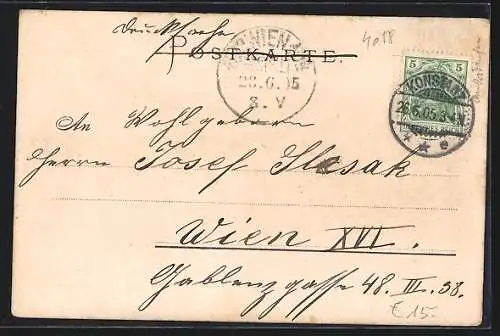 Drucksache
4018
POSTKARTE.
WIEN
28.6.05
8. V
5 5
KONSTANZ
26.6.05.
* * e
An Wohlgeboren
Herrn Josef Slesak
Wien XVI.
Gablenzgasse 48. III. 38.
€ 15.-